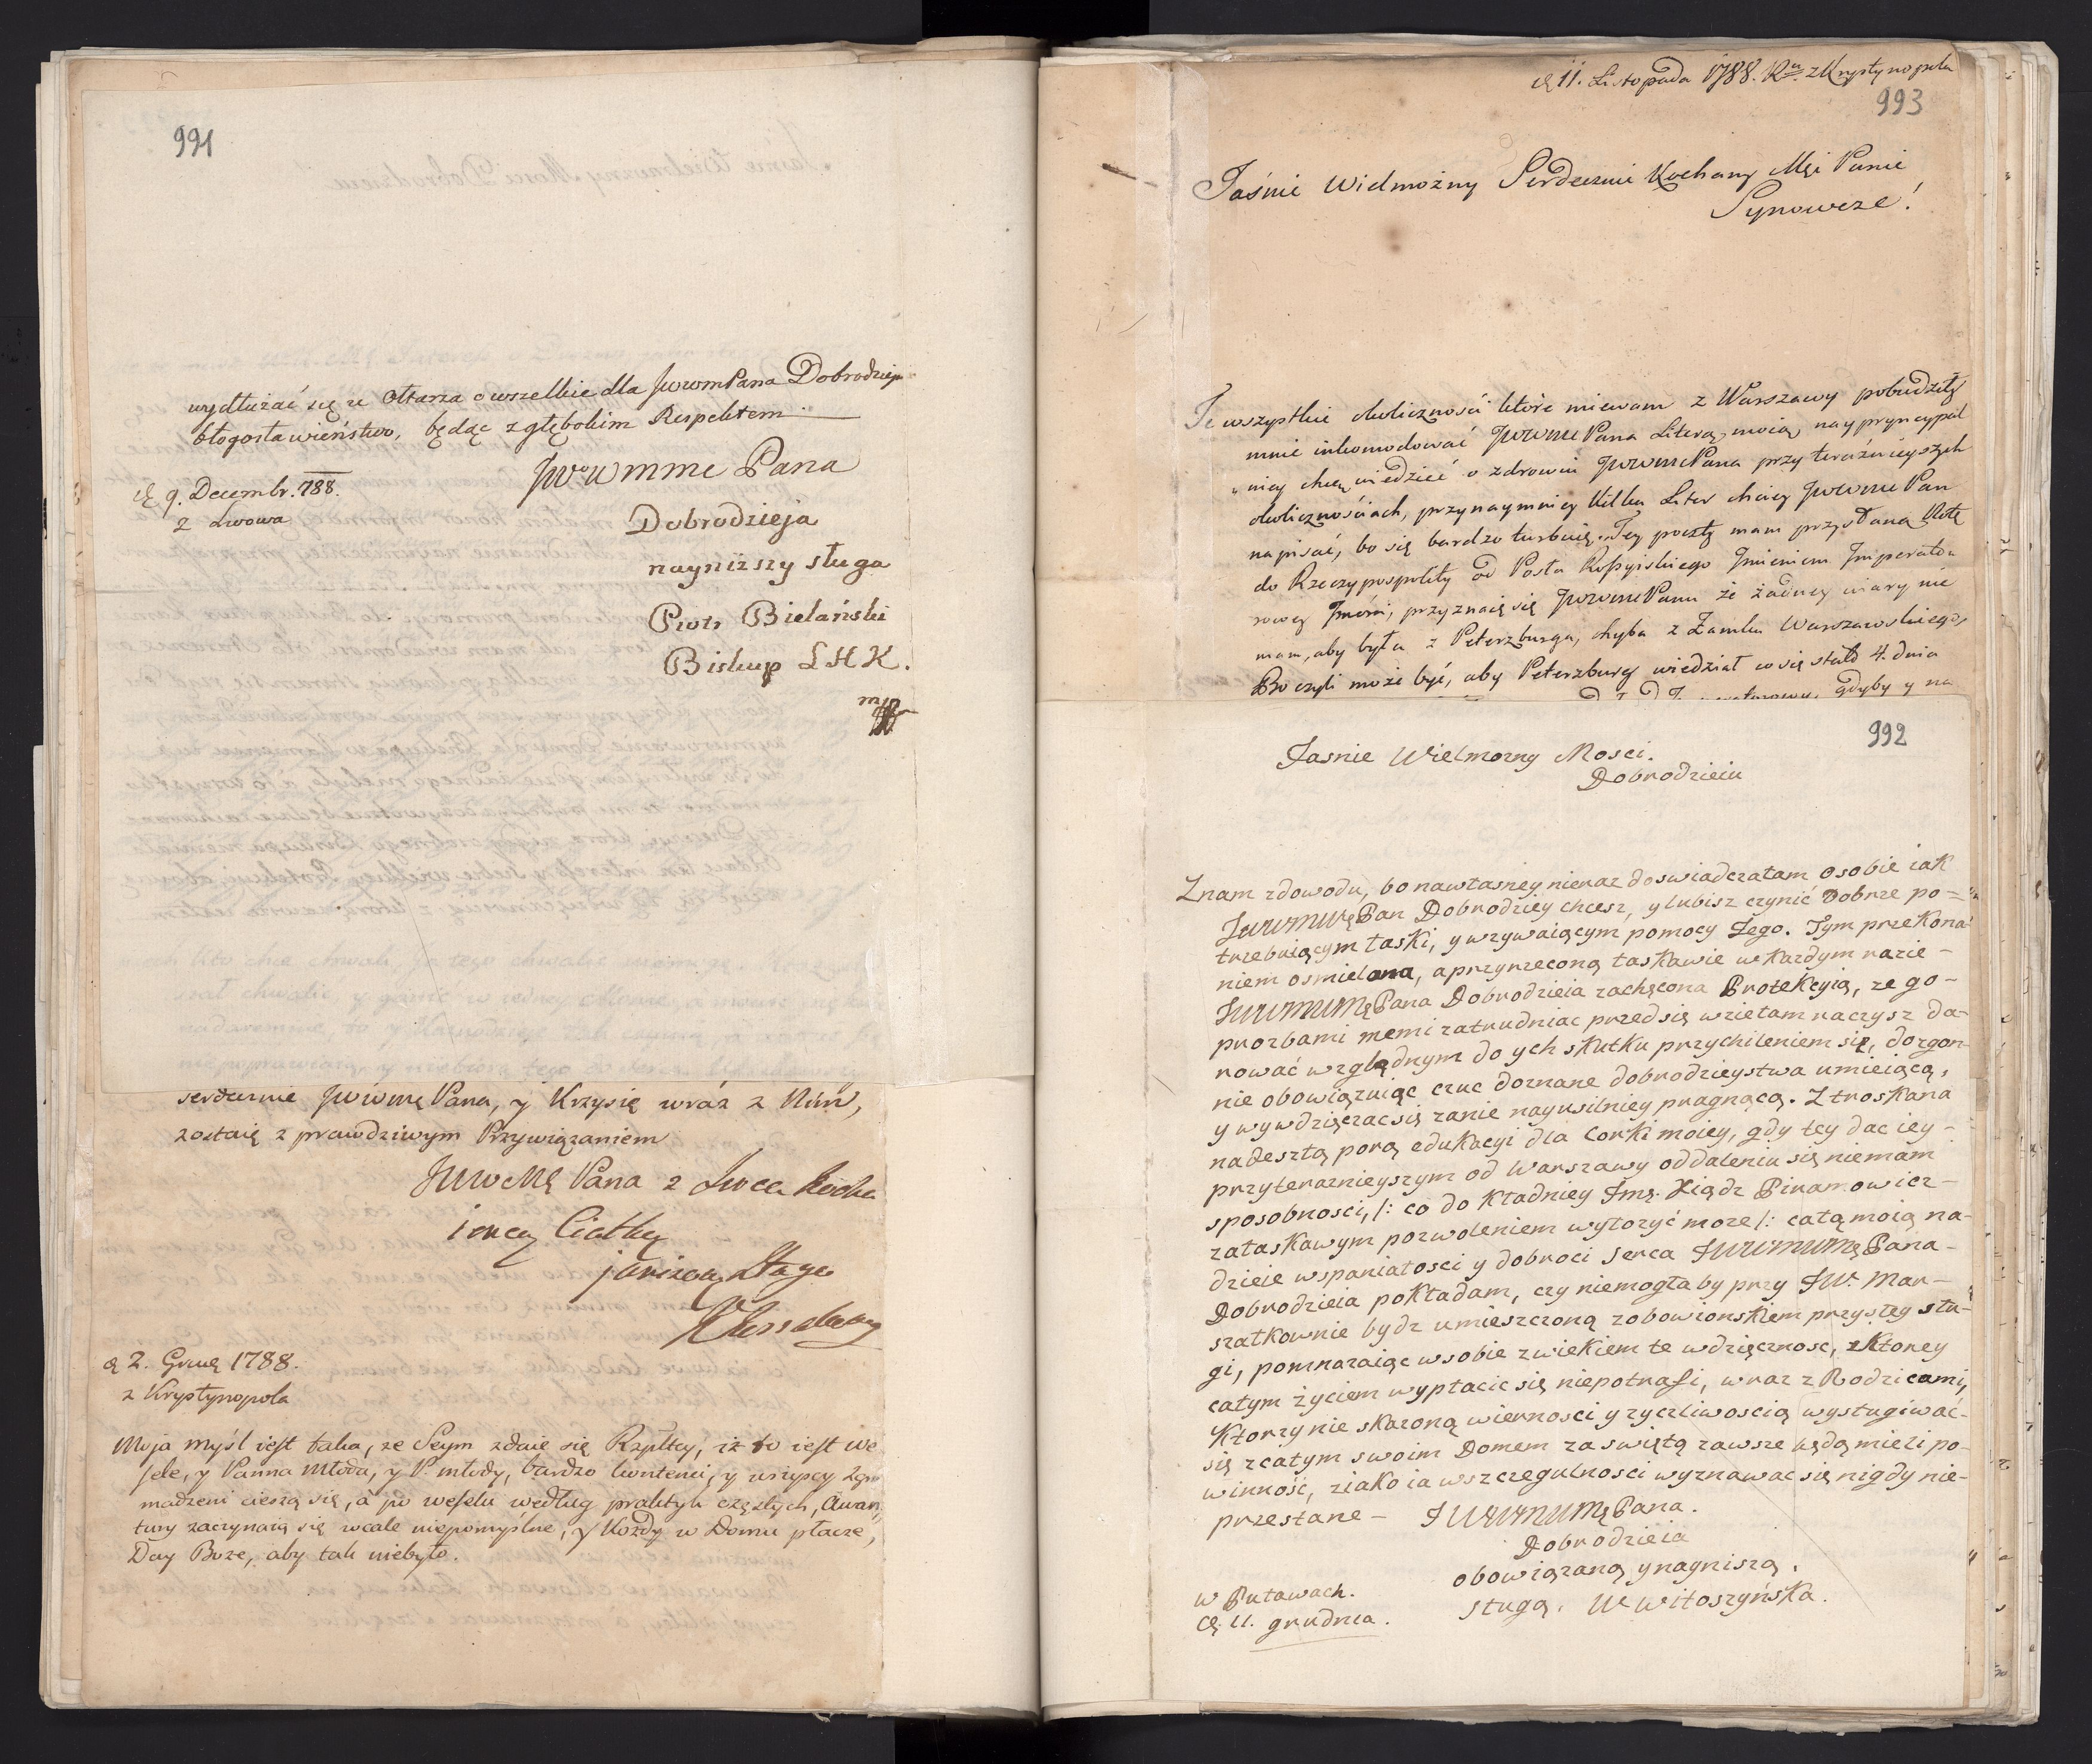 991
wydłużać się u Ołtarza o wszelkie dla JwwmPana Dobrodzieja
błogosławieństwo, będąc z głębokim Respektem
JWWmme Pana
Dobrodzieja
nayniższy sługa
Piotr Bielański
Biskup LHK.
mp
9. Decembr. 788.
z Lwowa
serdecznie Jwwmę Pana, y Krzysię wraz z Nim,
zostaię z prawdziwym Przywiązaniem
JWWMę Pana z serca kocha
iącą Ciotką
y niższą sługą
2. Grud. 1788.
z Krystynopola
Moja myśl iest taka, że Seym zdaie się Rzpltey, iż to iest We
sele, y Panna młoda, y P. młody, bardzo kontenci, y wszyscy zgro
madzeni cieszą się, a po weselu według praktyk częstych, Awan
tury zaczynaią się wcale niepomyślne, y Kożdy w Domu płacze,
Day Boże, aby tak niebyło.
11. Listopada 1788. Ru z Krystynopola
993
Jaśnie Wielmożny Serdecznie Kochany Mći Panie
Synowcze!
Te wszystkie okoliczności które miewam z Warszawy pobudziły
mnie inkomodować JWWme Pana Literą moią, naypryncypal
niey chcę wiedzieć o zdrowiu JWWme Pana przy teraźnieyszych
okolicznościach, przynaymniey kilku Liter chciey JWWme Pan
napisać, bo się bardzo turbuię. Tey poczty mam przysłaną Notę
do Rzeczypospolity od Posła Rossyiskiego Imieniem Imperato
rowey Jmci, przyznaię się JWWme Panu że żadney wiary nie
mam, aby była z Peterzburga, chyba z Zamku Warszawskiego,
Bo czyli może być, aby Peterzburg wiedział co się stało 4. dnia
gdyby y na
992
Jasnie Wielmozny Mosci.
Dobrodzieiu
Znam zdowodu, bo nawłasney nieraz doswiadczałam osobie iak
JWWMWę Pan Dobrodziey chcesz, y lubisz czynić Dobrze po=
trzebuiącym łaski, y wzywaiącym pomocy Jego. Tym przekona
niem osmielona, a przyrzeconą łaskawie w Kazdym razie-
JWWMWMę Pana Dobrodzieia zachęcona Protekcyią, ze go-
prozbami memi zatrudniac przed się wzietam naczysz da-
rować względnym do ych skutku przychileniem się, dozgon-
nie obowiązuiąc czuc doznane dobrodzieystwa umieiącą,
y wywdzięczac się zanie nayusilniey pragnącą. Ztroskana
nadeszłą porą edukacyi dla Corki moiey, gdy tey dac iey-
przyteraznieyszym od Warszawy oddaleniu się niemam
sposobnosci, /: co do kładniey Jmę. Xiądz Piramowicz-
załaskawym pozwoleniem wyłozyć moze /: całą moią na-
dzieie wspaniałosci y dobroci serca JWWMWMę Pana-
Dobrodzieia pokładam, czy niemogłaby przy JW. Mar-
szałkownie bydz umieszczoną zobowionskiem przysięg słu-
gi, pomnazaiąc wsobie zwiekiem te wdzięcznosc, z Ktorey
całym życiem wypłacic się niepotrafi, wraz z Rodzicami,
Ktorzy nie skazoną wiernosci y zyczliwoscią wysługiwać-
się zcałym swoim Domem za swiętą zawsze będą mieli po-
winność, ziako ia wszczegulnosci wyznawac się nigdy nie-
przestane - JWWMWMę Pana.
Dobrodzieia
obowiązaną y nayniszą.
sługą. W Witoszyńska.
w Puławach.
11. grudnia.